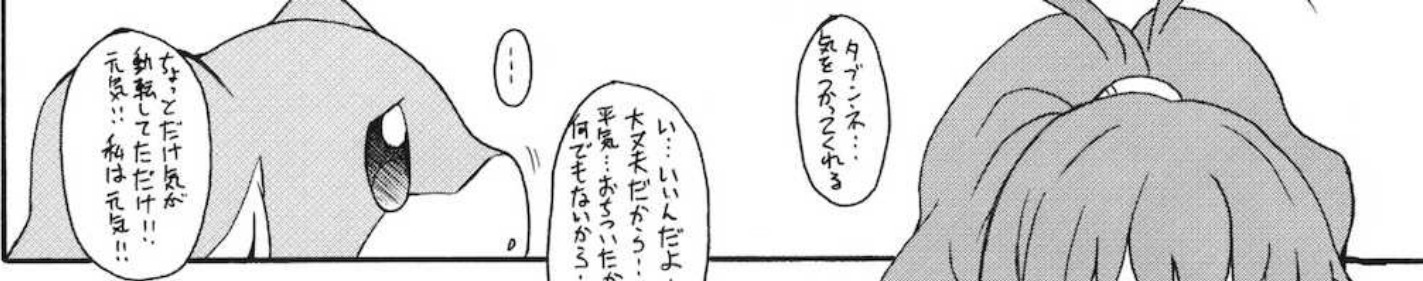 タブンネ・・・
気をつかってくれる
い・・・いいんだよ・
大丈夫だから・・・
平気・・・おちついたか
何でもないから・
・・・
ちょっとだけ気が
動転してただけ!!
元気!! 私は元気!!